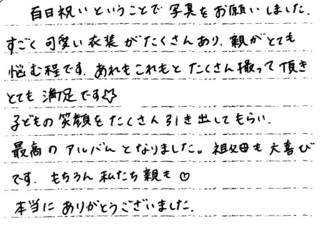 百日祝いということで写真をお願いしました.
すごく可愛い衣装がたくさんあり、親がとても
悩む程です. あれもこれもとたくさん撮って頂き
とても満足です♡
子どもの笑顔をたくさん引き出してもらい.
最高のアルバムとなりました。祖父母も大喜び
です. もちろん私たち親も♡
本当にありがとうございました.